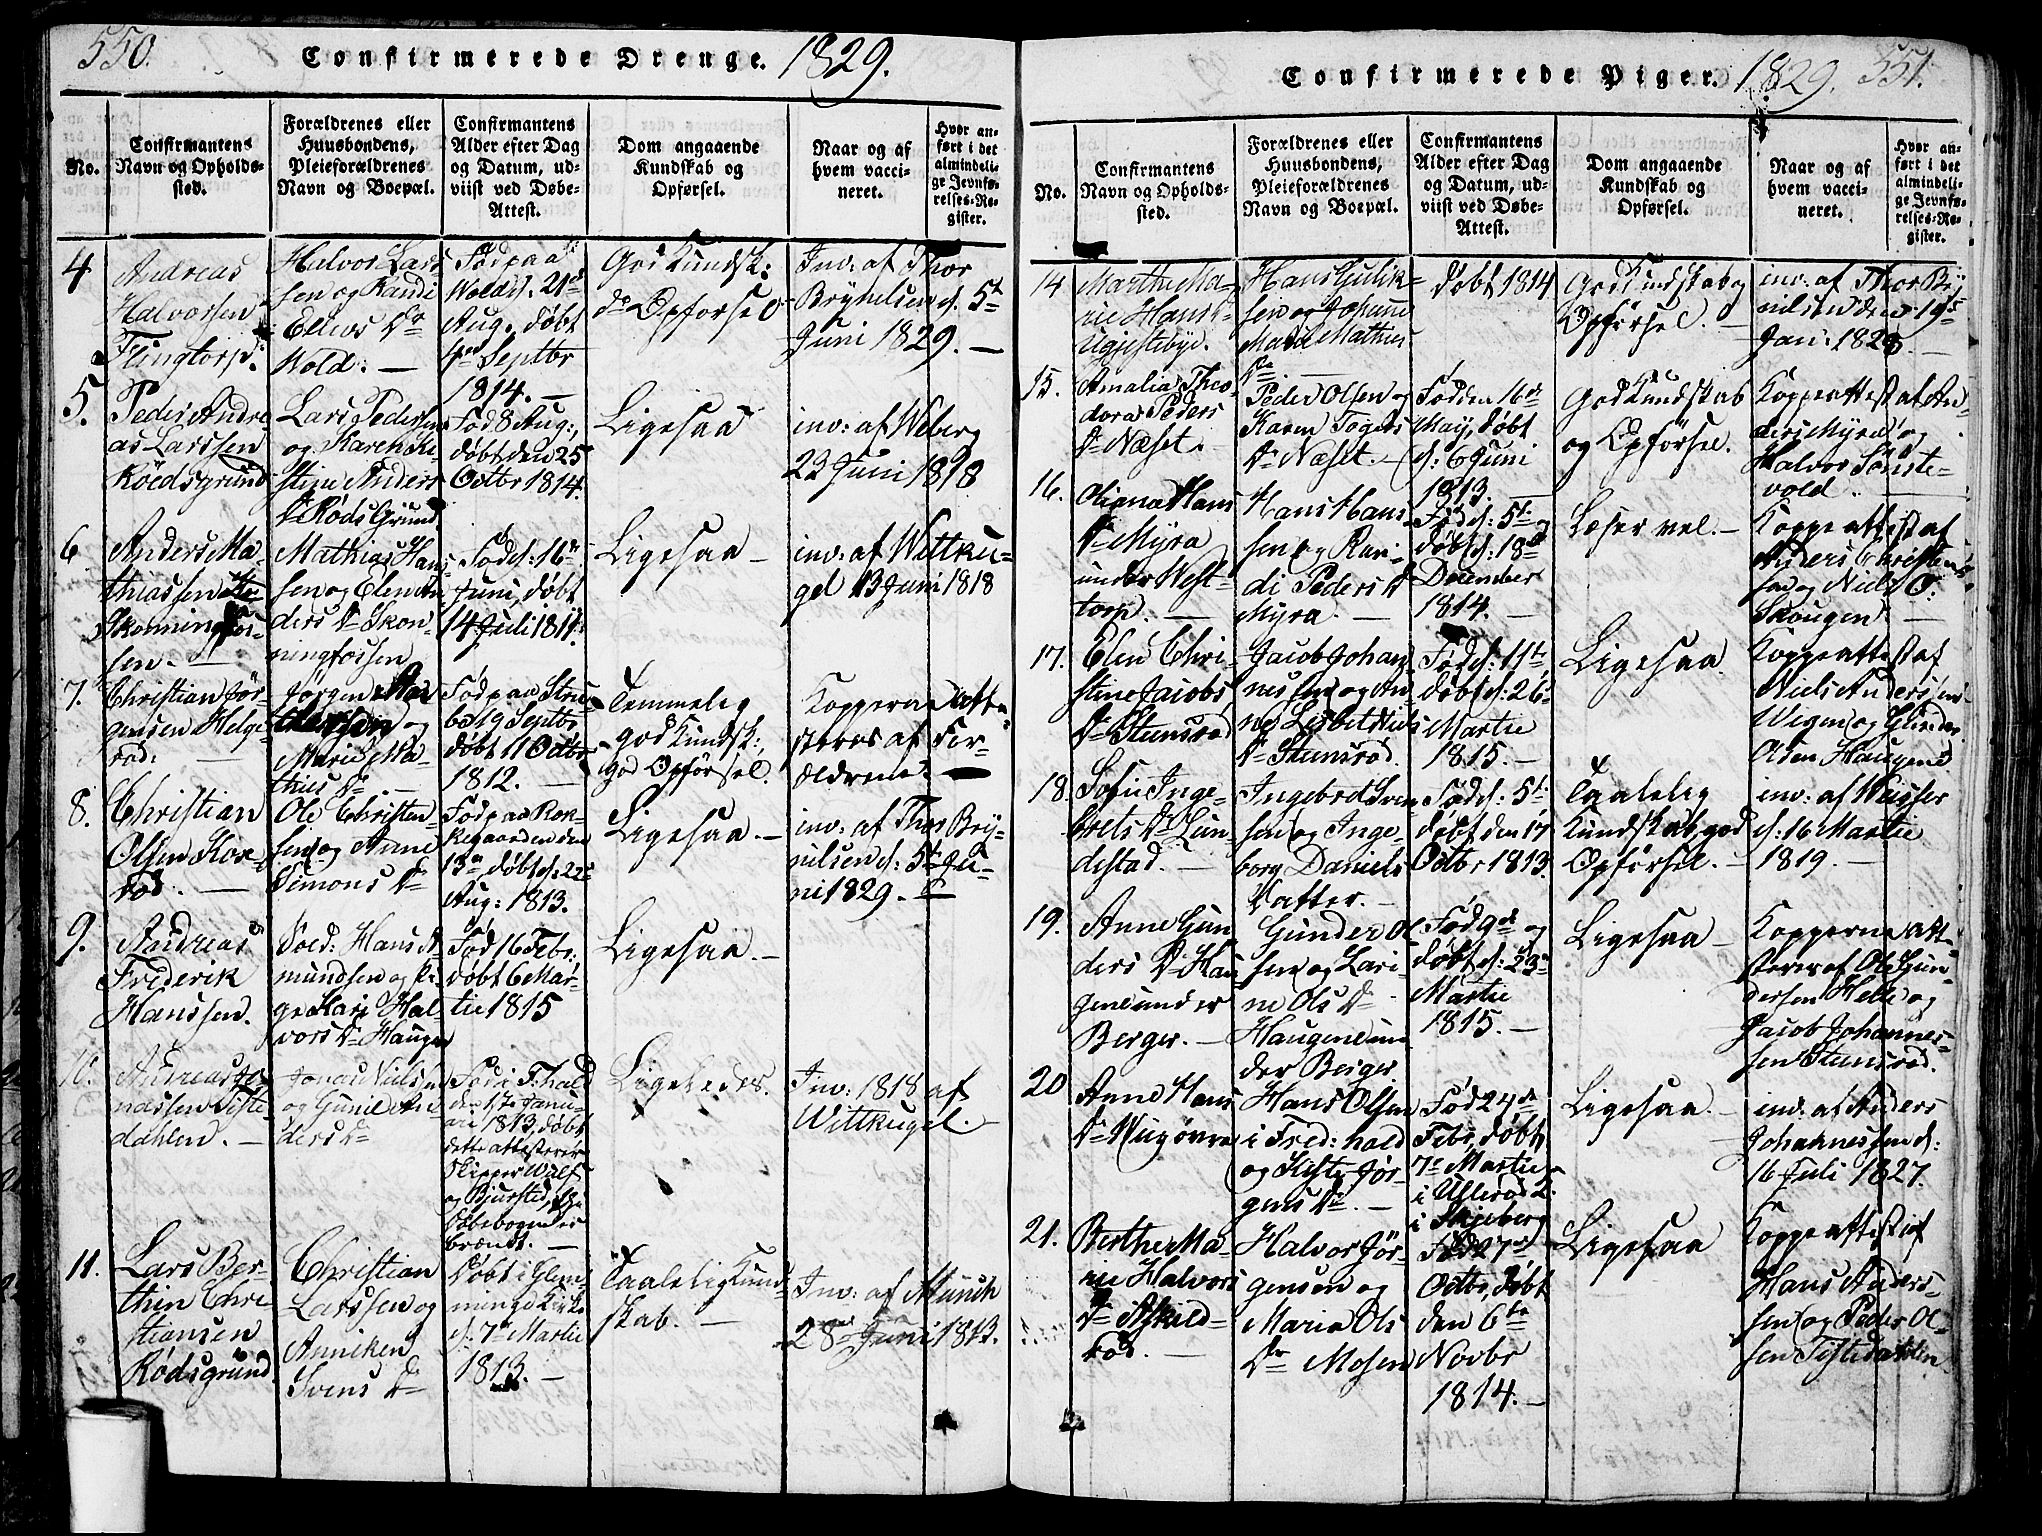 550.
Confirmerede Drenge. 1829.
No.
Confirmantens
Navn og Opholds-
sted.
Forældrenes eller
Huusbondens,
Pleieforældrenes
Navn og Boepæl.
Confirmantens
Alder efter Dag
og Datum, ud-
viist ved Døbe-
Attest.
Dom angaaende
Kundskab og
Opførsel.
Naar og af
hvem vacci-
neret.
Hvor an-
ført i det
almindeli-
ge Jevnfø-
relses-Re-
gister.
4
Andreas
Halvorsen
Flingtorp.
Halvor Lar-
sen og Randi
Ellevs Dr
Wold. —
Fød paa
Wold d. 21de
Aug, døbt
4de Septbr
1814. —
God Kundsk:
do Opførsel
Inv: af Thor
Brynelsen d. 5te
Juni 1829. —
5.
Peder Andre-
as Larssen
Röedsgrund
Lars Pedersen
og Karen Ki-
stine Anders
Dr Røds Grund
Fød 8 Aug:,
døbt den 25
Octbr 1814.
Ligesaa
inv: af Weberg
23 Juni 1818
6
Anders Ma-
thiassen
Skonningfos-
sen. —
Mathias Hans-
sen og Elen An-
ders Dr Skon-
ningfossen
Fød d: 16de
Juni, døbt
14 Juli 1811.
Ligesaa —
inv: af Wittku-
gel 13 Juni 1818
7.
Christian Jør-
gensen Helge-
rød. —
Jørgen
og
Marie Ma-
thias Dr. —
Fød paa
19 Septbr
døbt 11 Octbr
1812. —
Temmelig
god Kundsk:,
god Opførsel.
Kopperne atte-
steres af For-
ældrene. —
8.
Christian
Olsen Kor-
rød. —
Ole Christen-
sen og Anne
Simons Dr
Fød paa Kor-
kegaarden den
13de, døbt d: 22de
Aug: 1813.
Ligesaa. —
inv: af Thor Bry-
nilsen d: 5te Ju-
ni 1829. —
9.
Andreas
Frederik
Hanssen.
Sold: Hans A-
mundsen og Pi-
ge Kari Hal-
vors Dr Haugen
Fød 16 Febr:,
døbt 6 Mar-
tie 1815
Ligesaa. —
10.
Andreas Jo-
nassen Tiste-
dahlen. —
Jonas Nielsen
og Gunil An-
ders Dr
Fød i F:hald
den 17de Janu-
ari 1813, døbt
dette attesterer
Skipper Wulf
og Bjursted,
Døbebogen er
brændt. —
Ligeledes.
Inv: 1818 af
Wittkugel.
11.
Lars Ber-
thin Chri-
stiansen
Rødsgrund.
Christian
Larssen og
Anniken
Svens Dr
Døbt i Glem-
minge Kirke
d. 7de Martie
1813. —
Taalelig Kund-
skab. —
Inv: af Münch
28 Juni 1813.
Confirmerede Piger. 1829. 551.
No.
Confirmantens
Navn og Opholds-
sted.
Forældrenes eller
Huusbondens,
Pleieforældrenes
Navn og Boepæl.
Confirmantens
Alder efter Dag
og Datum, ud-
viist ved Døbe-
Attest.
Dom angaaende
Kundskab og
Opførsel.
Naar og af
hvem vacci-
neret.
Hvor an-
ført i det
almindeli-
ge Jevnfø-
relses-Re-
gister.
14
Marthe Ma-
rie Hans Dr
Ugjestebye.
Hans Gulik-
sen og Johanne
Marie Mathias
Dr —
døbt 1814
God Kundskab og
Opførsel. —
inv: af Thor Bry-
nilsen den 19de
Jan: 1828. —
15.
Amalia Theo-
dora Peders
Dr Næset.
Peder Olsen og
Karen Tøgers
Dr Næset. —
Fød den 16de
May, døbt
d: 6 Juni
1813. —
God Kundskab
og Opförsel.
Koppeattest af An-
ders Myra og
Halvor Sønste-
vold
16.
Oliana Hans
Dr Myra
under West-
torp. —
Hans Hans-
sen og Ran-
di Peders Dr
Myra. —
Fød d: 5te og
døbt d: 18de
December
1814. —
Læser vel. —
Koppeattest af
Anders Christen-
sen og Niels O.
Skougen —
17.
Elen Chri-
stine Jacobs
Dr Stumsrød
Jacob Johan-
nessen og An-
ne Lisbet Niels
Dr Stumsrød.
Fød d: 11te,
døbt d: 26de
Martie
1815. —
Ligesaa.
Koppeattest af
Niels Andersen
Wigen og Gunder
Olsen Haugene
18.
Sofie Inge-
brets Dr Lun-
destad. —
Ingebret Iver-
sen og Inge-
borg Daniels
Datter. —
Fød d: 5te
døbt den 17
Octbr 1813.
Taalelig
Kundskab, god
Opførsel. —
inv: af Weisser
d: 16 Martie
1819. —
19.
Anne Gun-
ders Dr Hau-
gene under
Berger. —
Gunder Ol-
sen og Lari-
ne Ols Dr
Haugene un-
der Berger
Fød 9de og
døbt d: 23de
Martie
1815. —
Ligesaa —
Kopperne att-
steres af Ole Gun-
dersen Helle og
Jacob Johannes-
sen Stumsrød.
20
Anne Hans
Dr Wugovra
Hans Olsen
i Fred:hald
og Kiste Jør-
gens Dr. —
Fød 24de
Febr, døbt
7de Martie
i Ullerød
i Skjeberg
Ligesaa. —
ind. af Anders
Johannessen d:
16 Juli 1827.
21.
Berthe Ma-
rie Halvors
Dr Askild-
rød. —
Halvor Jør-
gensen og
Maria Ols
Dr Mosen
Fød 27de
Octbr, døbt
den 6te
Novbr
1814. —
Ligesaa
Koppeattest af
Hans Anders-
sen og Peder Ol-
sen Tistedahlen